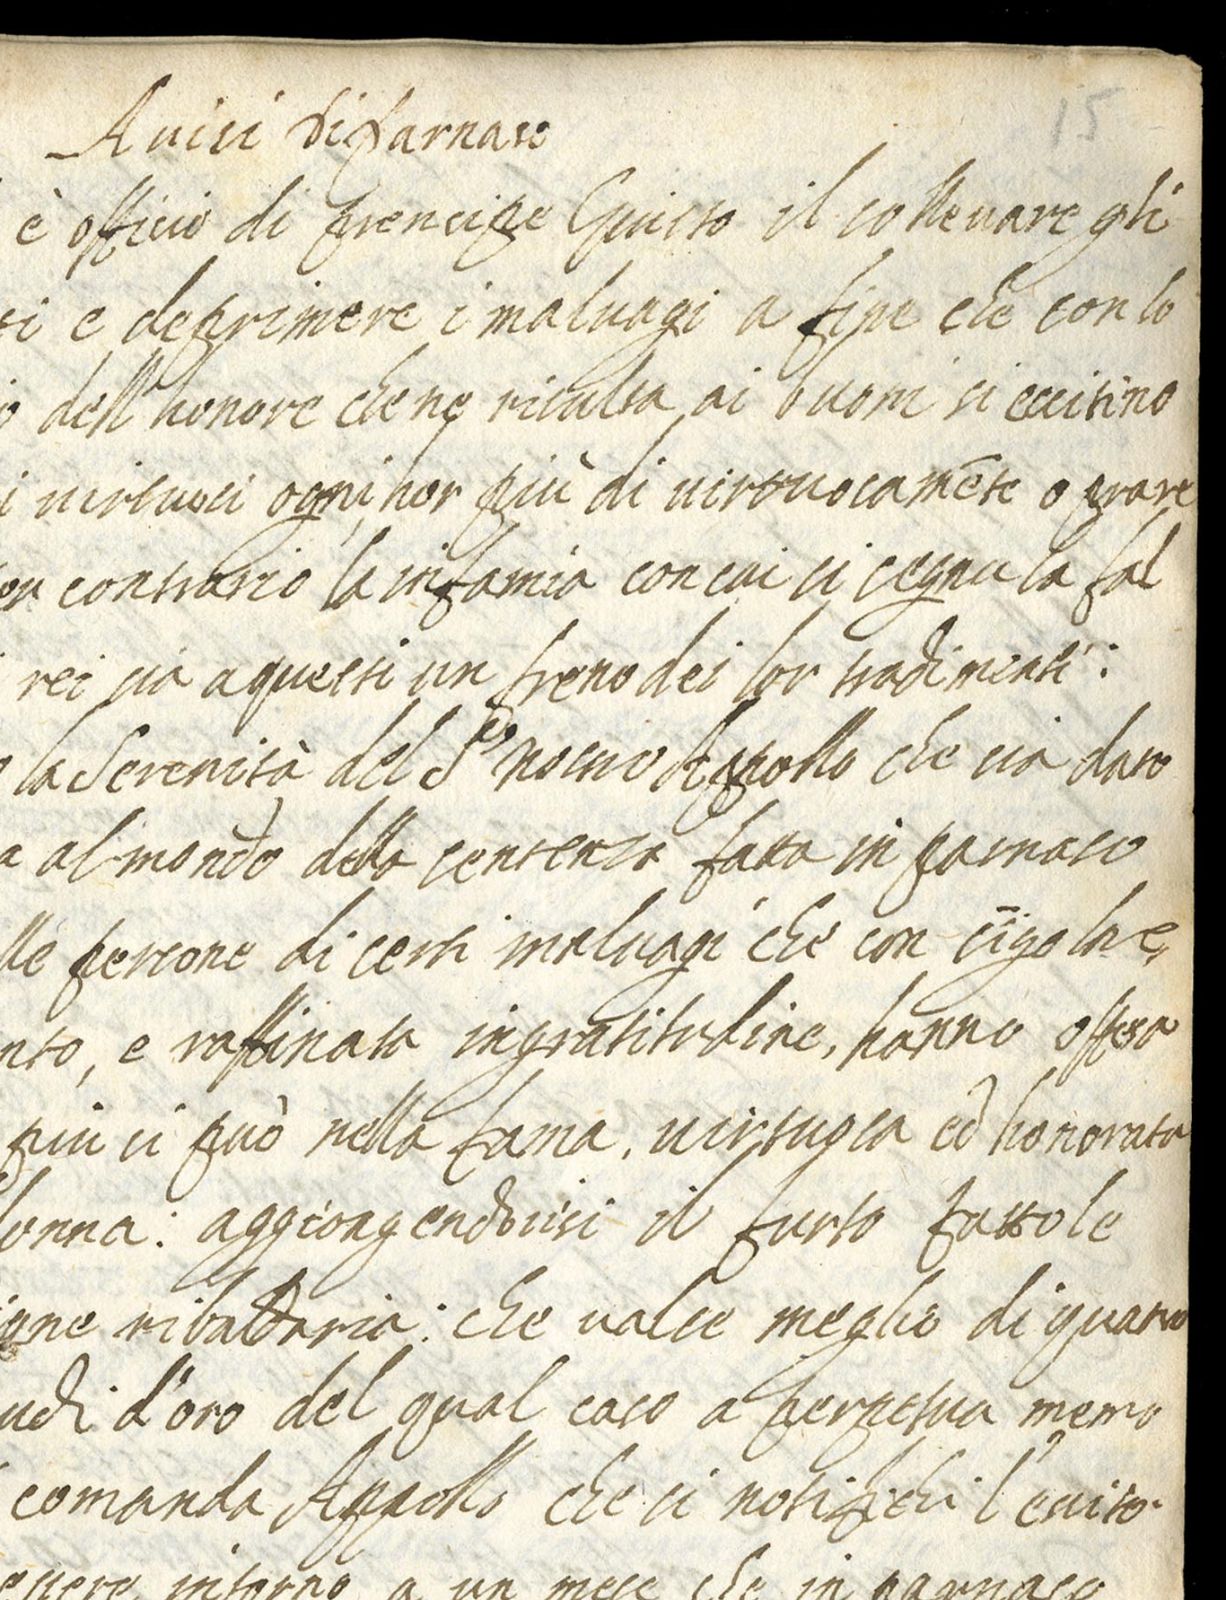 15
Auisi di Parnaso
è officio di prencipe Giusto il solleuare gli
ti e deprimere i maluagi a fine che con lo
o dell'honore che ne risulta ai buoni si eccitino
i uirtuosi ogni hor più di uirtuosamēte oprare
per contrario la infamia con cui si segna la fal
rei sia a questi un freno dei lor tradimenti:
o la Serenità del S.r nostro Appollo che sia dato
a al mondo della sentenza fatta in parnaso
lle persone di certi maluagi che con
nto, e raffinata ingratitudine, hanno offesa
piu si può nella fama, uirtuosa ed honorata
donna: aggiongendouisi il furto fattole
ione ribaldaria: che ualse meglio di quatro
udi d'oro del qual caso a perpetua memo
comanda Appollo che si notifichi l'euito
essere intorno a un mese che in parnaso